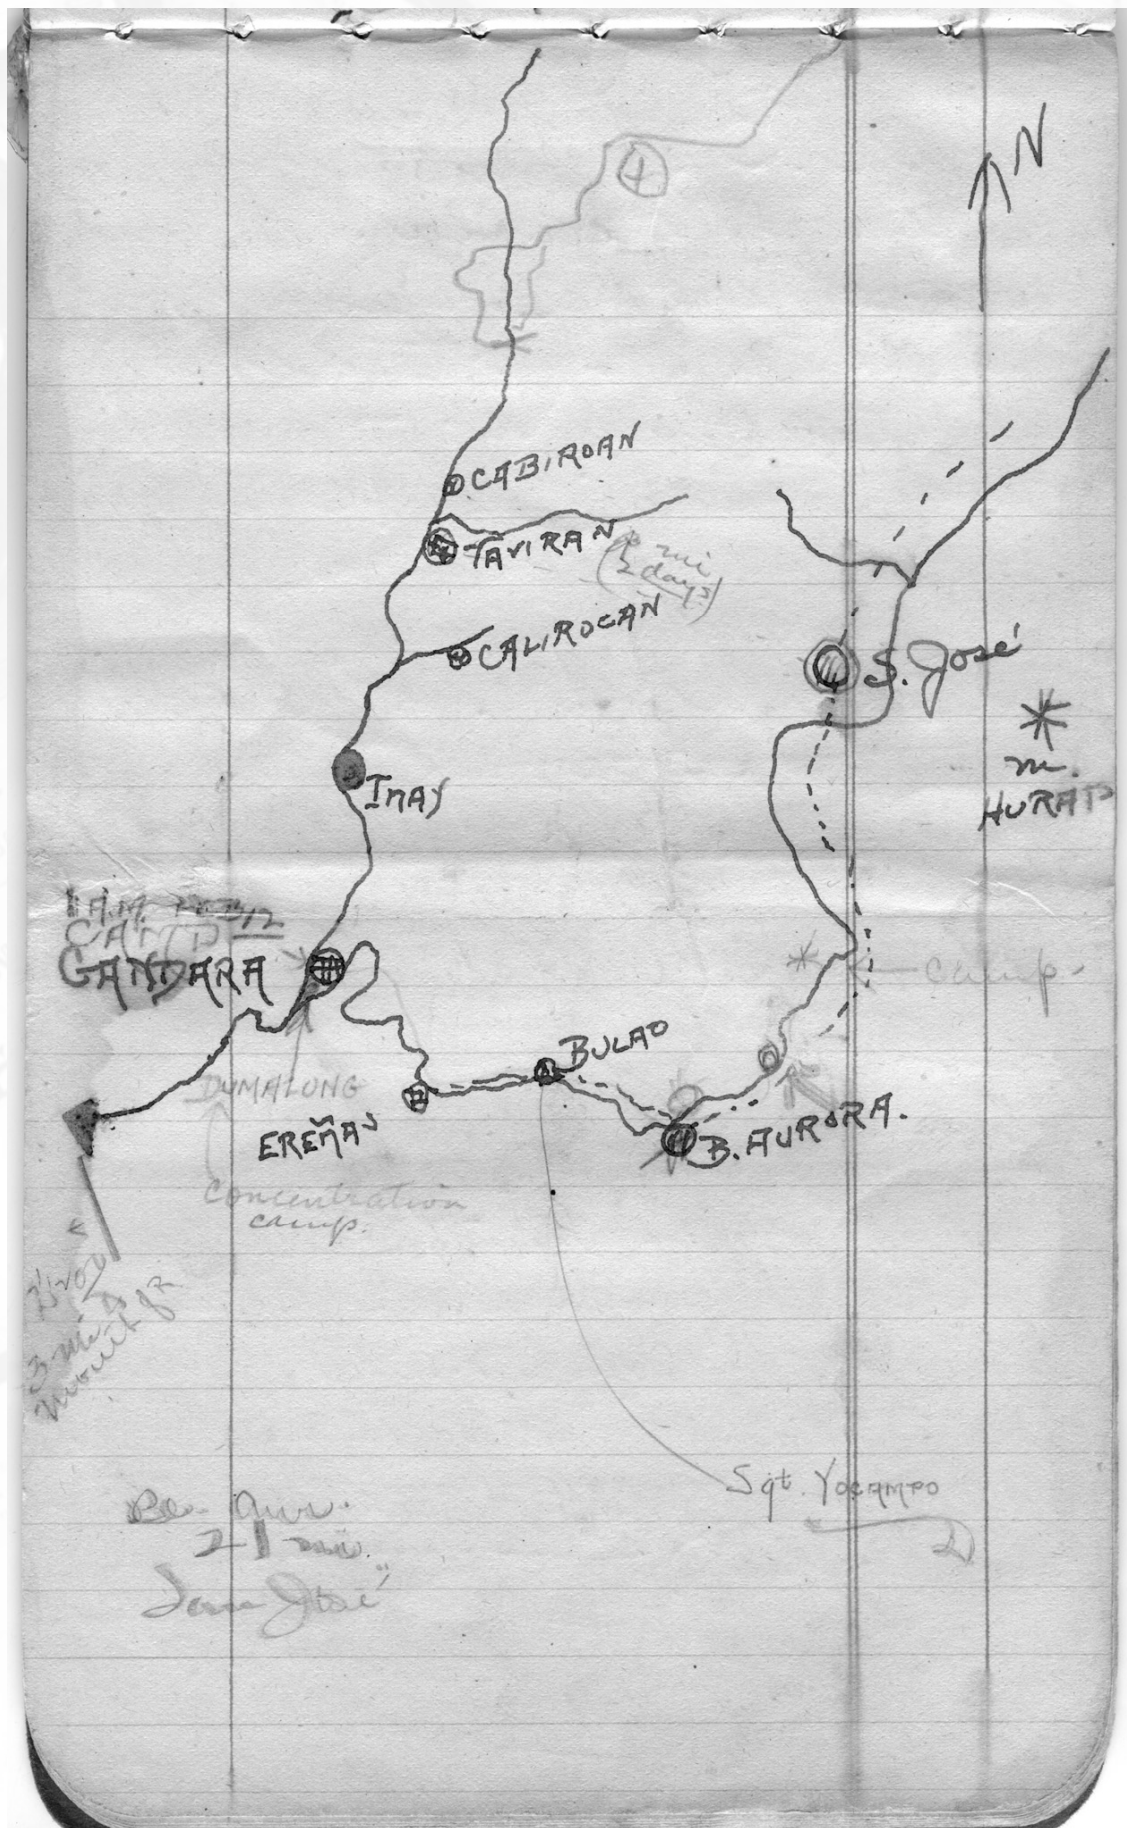 N
CABIROAN
TAVIRAN
mi
2 days)
CALIROCAN
S. José
m.
HURAT
IMAY
CAMP
GANDARA
camp-
BULAO
DUMALONG
EREÑAS
B. AURORA.
concentration
camp.
3 mi
Sgt. YOCAMPO
21
José